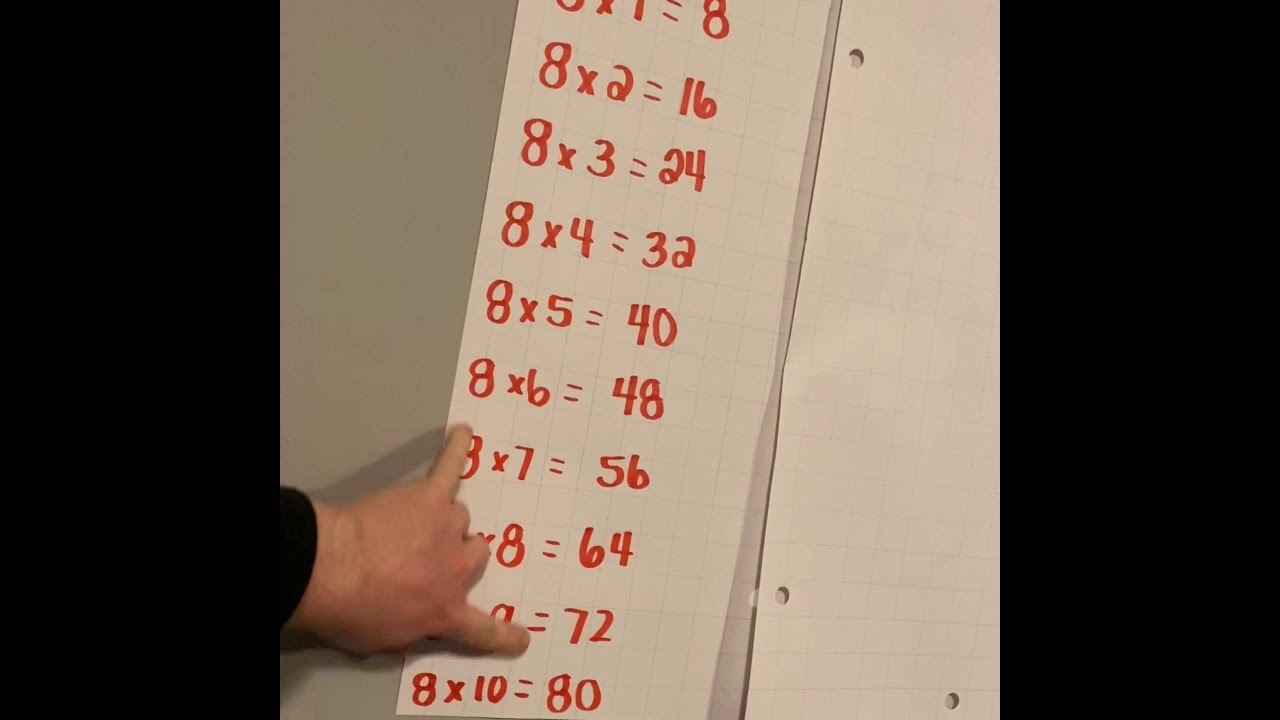 8 x 1 = 8
8 x 2 = 16
8 x 3 = 24
8 x 4 = 32
8 x 5 = 40
8 x 6 = 48
8 x 7 = 56
x 8 = 64
9 = 72
8 x 10 = 80